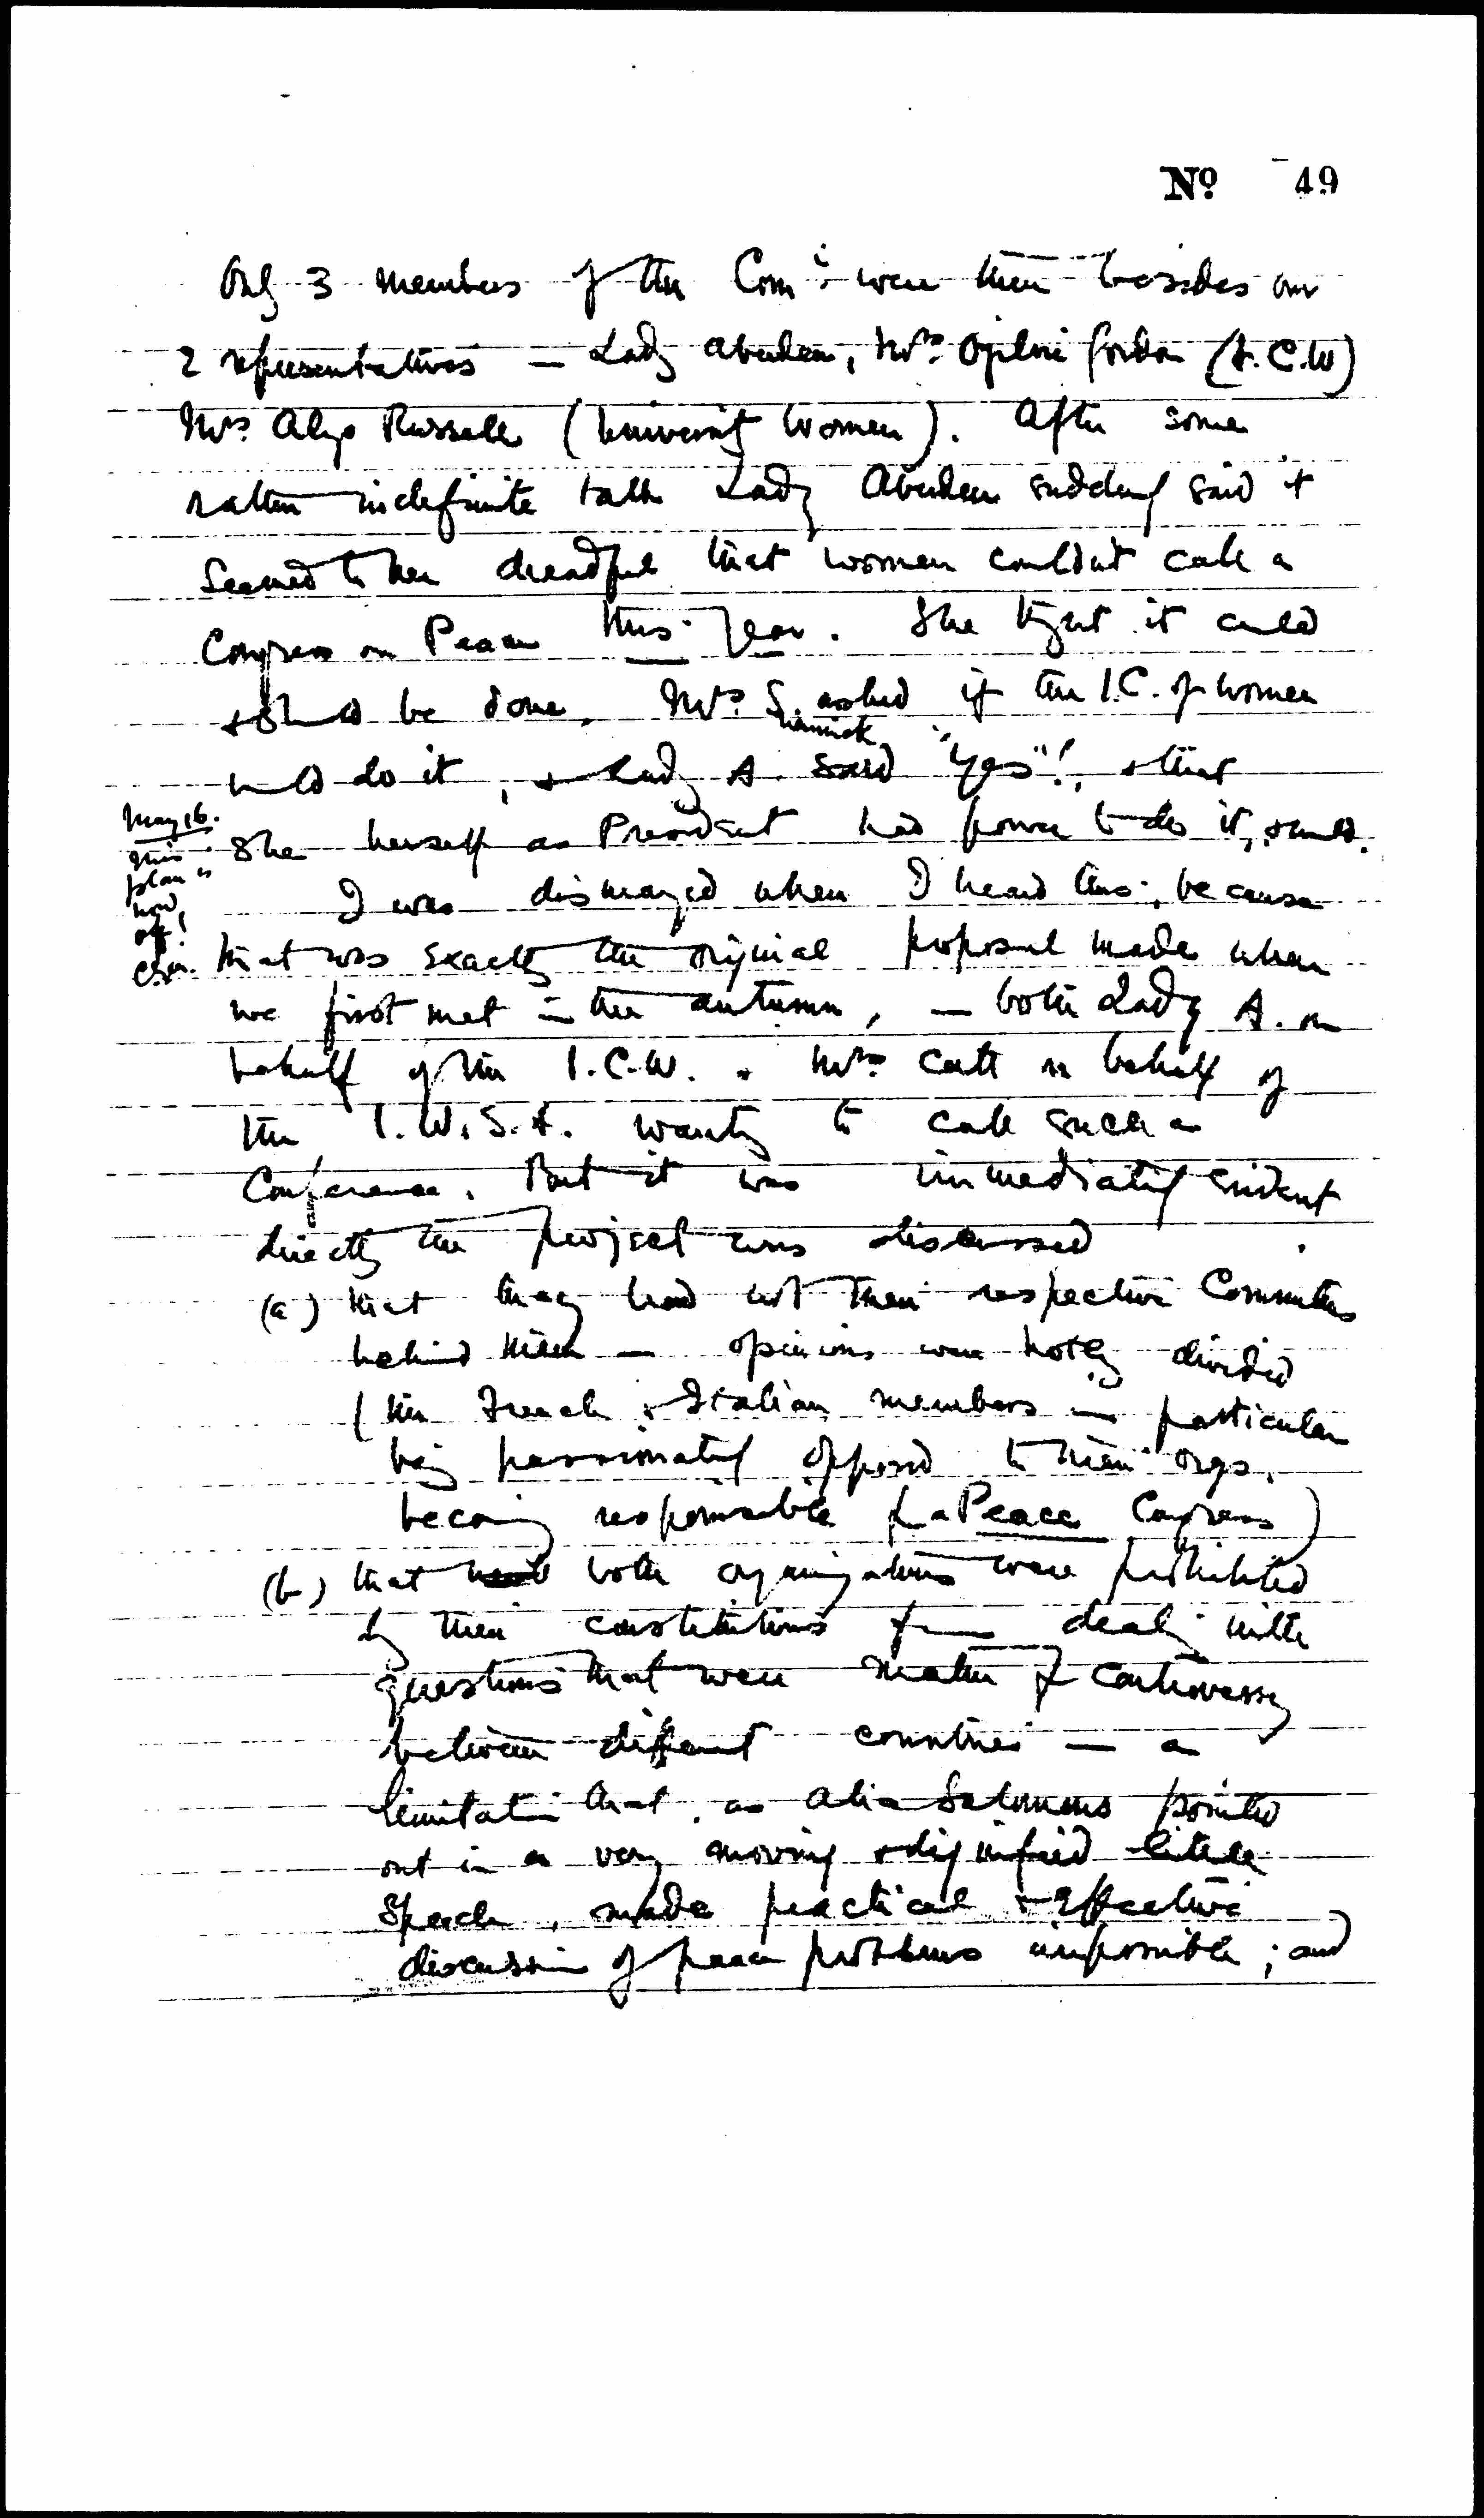 No 49
Only 3 members of the Com: were there besides our
2 representatives — Lady Aberdeen, Mrs. Ogilvie Gordon (I.C.W)
Mrs. Alys Russell (University Women). After some
rather indefinite talk Lady Aberdeen suddenly said it
seemed to her dreadful that women couldn't call a
Congress on Peace this year. She thght it could
& should be done. Mrs. Swanwick asked if the I.C. of Women
would do it, & Lady A. said "Yes"!, & that
she herself as President had power to do it, & would.
May 16.
This
plan is
now
off!
I was dismayed when I heard this; because
that was exactly the original proposal made when
we first met in the autumn, — both Lady A. on
behalf of the I.C.W. & Mrs. Catt on behalf of
the I.W.S.A. wanting to call such a
Conference. But it was immediately evident
directly the project was discussed
(a) that they had not their respective Committees
behind them — opinions were hotly divided
(the French & Italian members in particular
being passionately opposed to their orgs.
becoming responsible for a Peace Congress)
(b) that both organizations were prohibited
by their constitutions from dealing with
questions that were matter of controversy
between different countries — a
limitation that, as Alice Salomons pointed
out in a very moving & dignified little
speech, made practical & effective
discussion of peace problems impossible; and